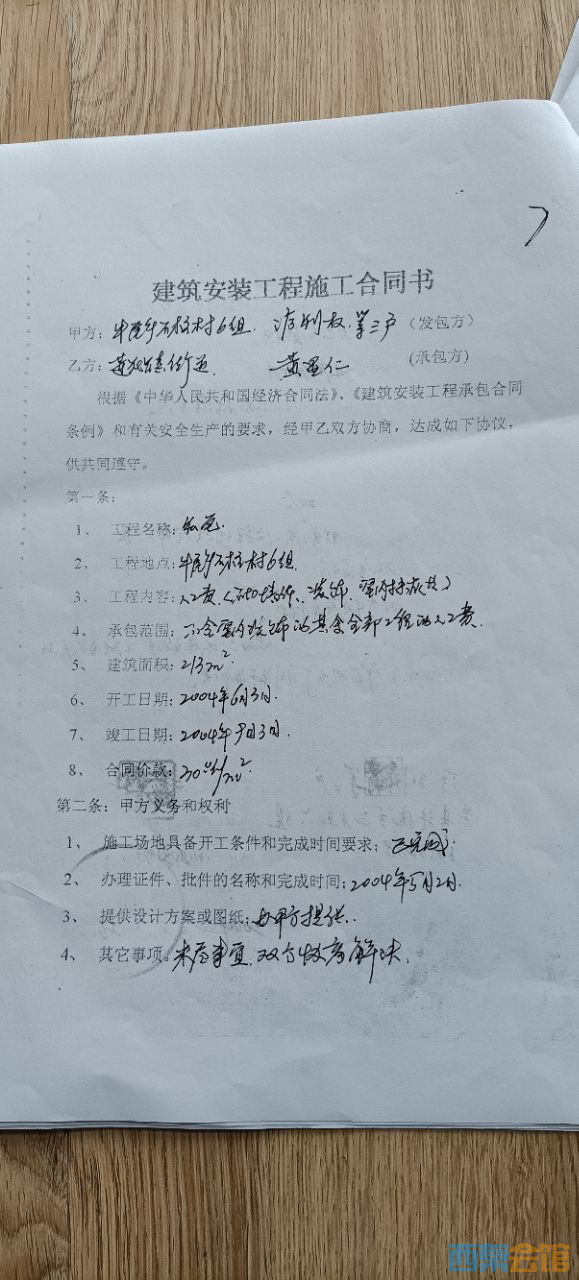 建筑安装工程施工合同书
甲方：牛 乡石 村6组 三户（发包方）
乙方： 黄 仁 （承包方）
根据《中华人民共和国经济合同法》、《建筑安装工程承包合同
条例》和有关安全生产的要求，经甲乙双方协商，达成如下协议，
供共同遵守。
第一条：
1、 工程名称：
2、 工程地点：牛 乡石 村6组
3、 工程内容：人工费（ 装饰、室内 ）
4、 承包范围：不含室内装饰的其余全部工程的人工费.
5、 建筑面积：213m²
6、 开工日期：2004年6月3日.
7、 竣工日期：2004年 月3日.
8、 合同价款： /m².
第二条：甲方义务和权利
1、 施工场地具备开工条件和完成时间要求；已完成.
2、 办理证件、批件的名称和完成时间；2004年5月2日.
3、 提供设计方案或图纸；由甲方提供.
4、 其它事项。未尽事宜，双方 解决.
西京会馆